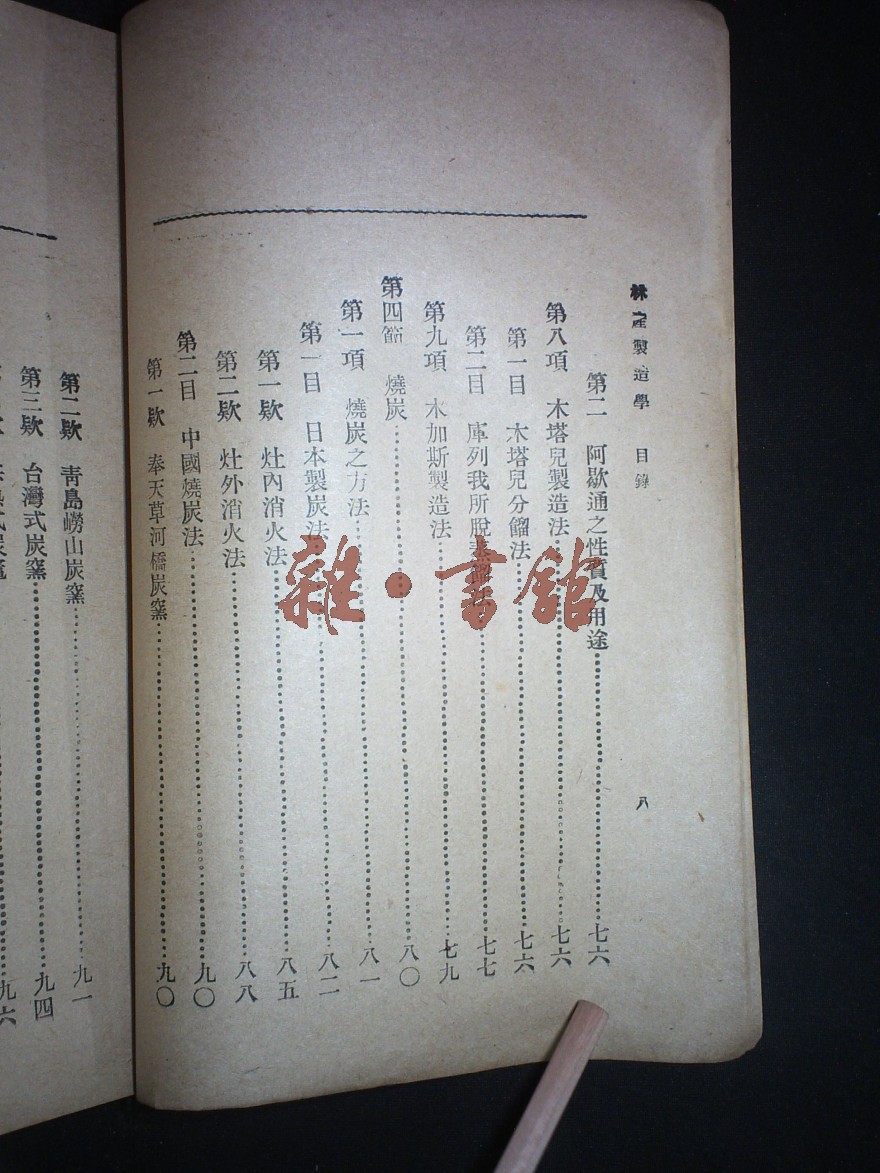 林產製造學 目錄 八
第二 阿歇通之性質及用途 七六
第八項 木塔兒製造法 七六
第一目 木塔兒分餾法 七六
第二目 庫列我所脫蒸餾法 七七
第九項 木加斯製造法 七九
第四節 燒炭 八〇
第一項 燒炭之方法 八一
第一目 日本製炭法 八二
第一欵 灶內消火法 八五
第二欵 灶外消火法 八八
第二目 中國燒炭法 九〇
第一欵 奉天草河橋炭窯 九〇
第二欵 青島嶗山炭窯 九一
第三欵 台灣式炭窯 九四
九六
雜·書館